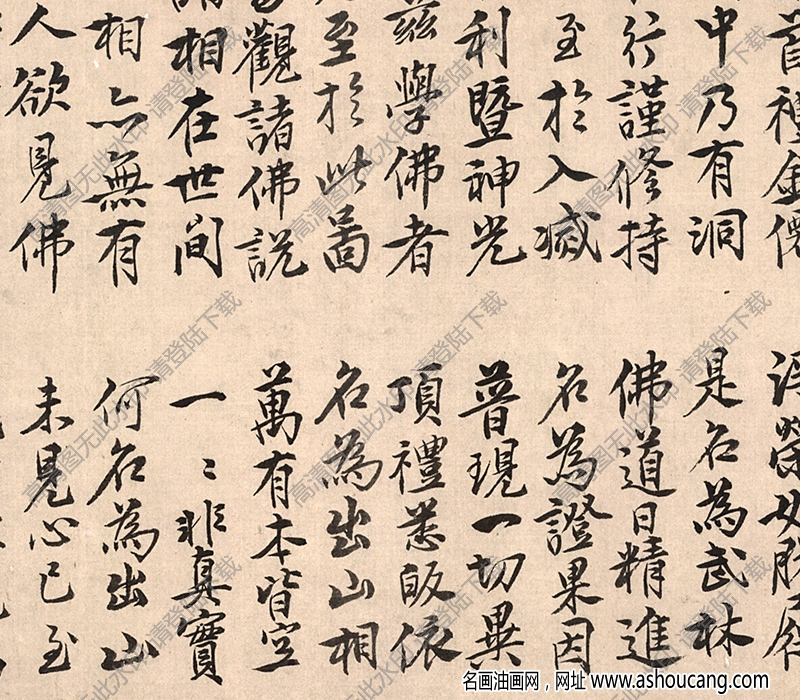 首禮金僊
浮榮如脫屣
中乃有洞
是名為武林
行謹修持
佛道日精進
至於入滅
名為證果因
利暨神光
普現一切異
茲學佛者
頂禮悉皈依
至於此啚
名為出山相
觀諸佛說
萬有本皆空
諸相在世間
一〻非真實
相亦無有
何名為出山
人欲見佛
未見心已至
高清图无此水印 请登陆下载
名画油画网，网址 www.ashoucang.com